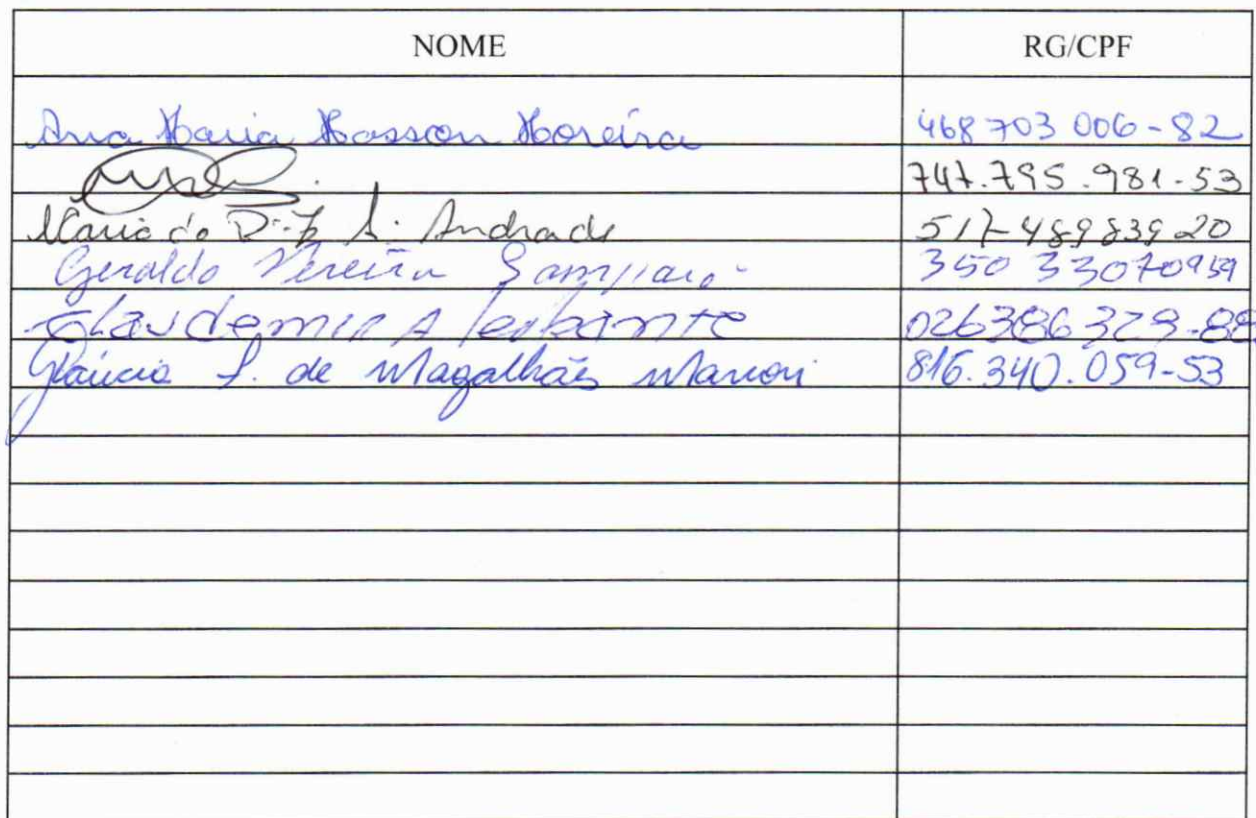 NOME RG/CPF
Ana Maria Mosson Moreira 468703 006-82
747.795.981-53
Maria do D. F. A. Andrade 517-489839 20
Geraldo Pereira Sampaio 350 33070959
Claudemir A 026386329-88
Gláucia S. de Magalhães Marion 816.340.059-53